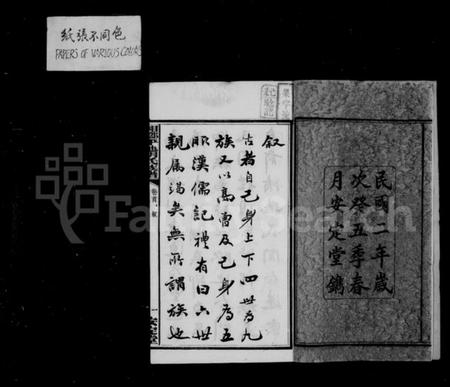 紙張不同色
PAPERS OF VARIOUS COLORS
民國二年歲
次癸丑季春
月安定堂鐫
叙
古者自己身上下四世為九
族又以高曾及己身為五
服漢儒記禮有曰六世
親屬竭矣無所謂族也
卷首 叙
一
FamilySearch